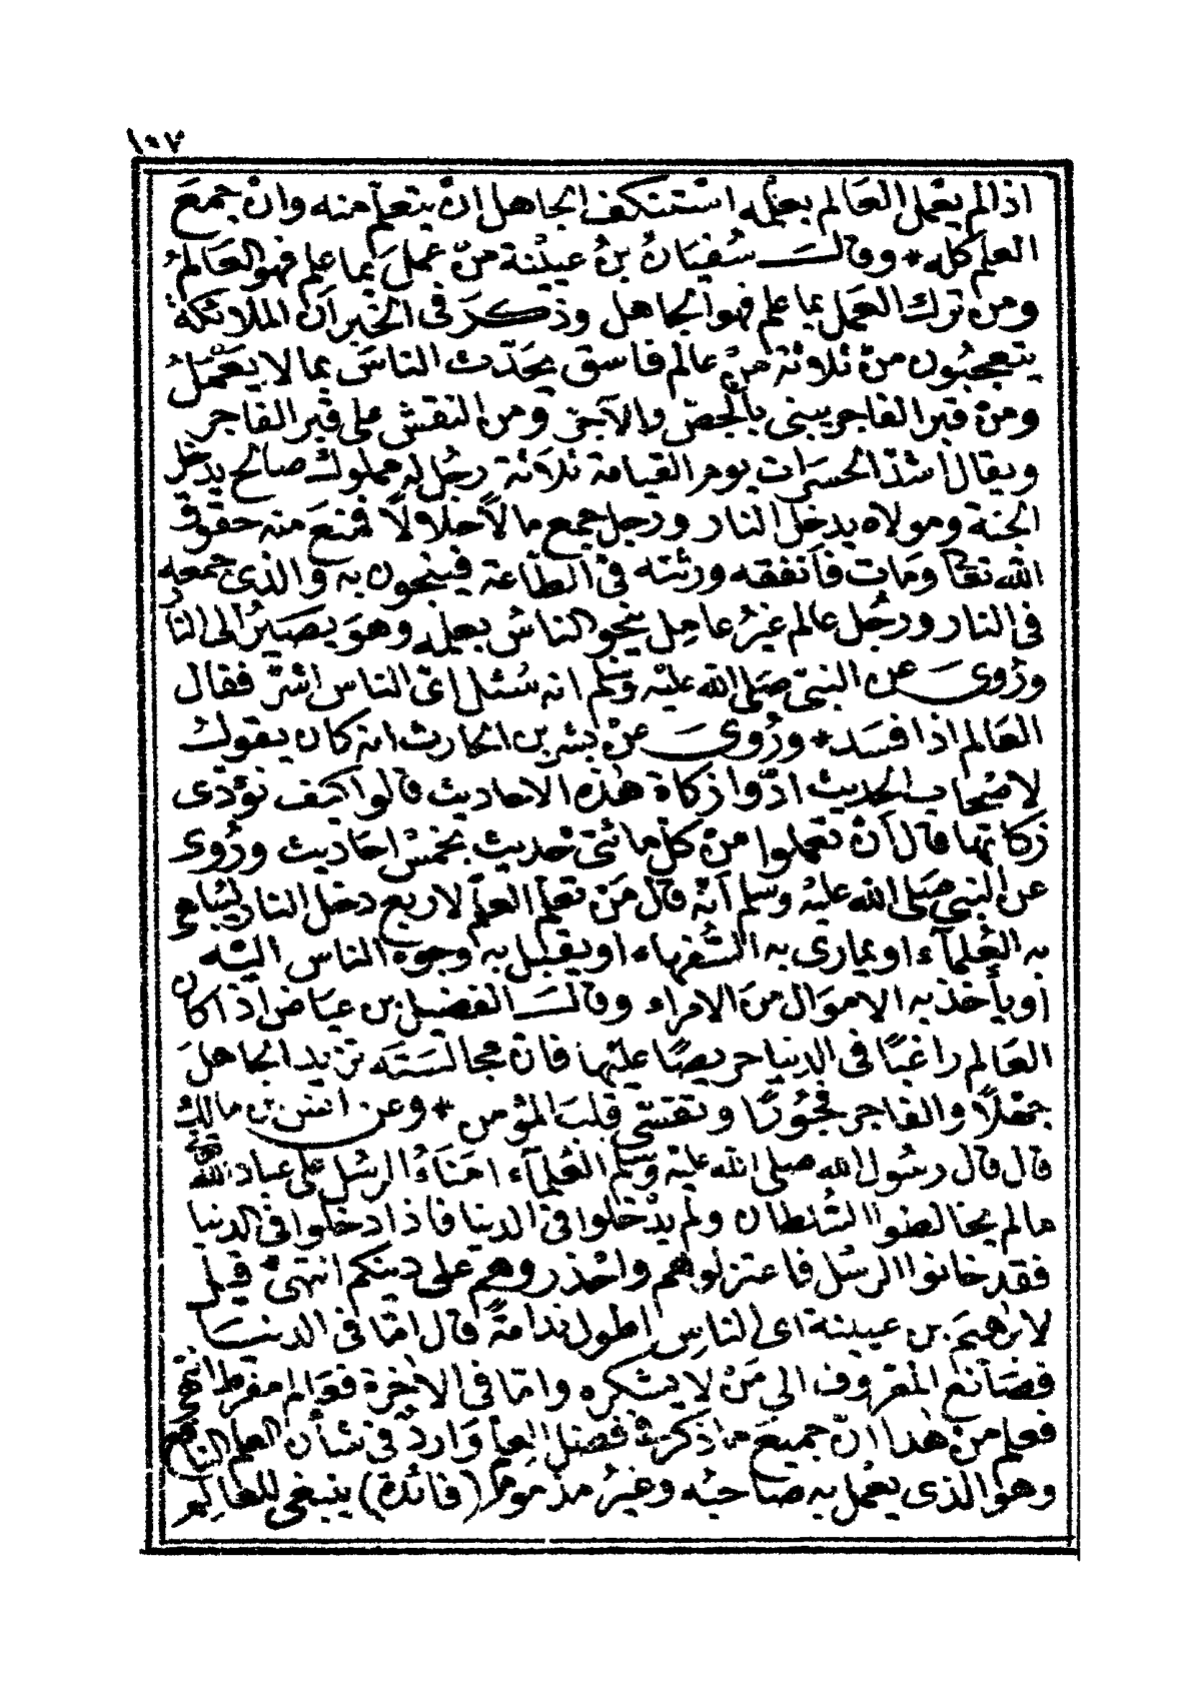 ١٥٧
اذا لم يعمل العالم بعلمه استنكف الجاهل ان يتعلم منه وان جمع
العلم كله * وقال سفيان بن عيينة من عمل بما علم فهو العالم
ومن ترك العمل بما علم فهو الجاهل وذكر في الخبر ان الملائكة
يتعجبون من ثلاثة من عالم فاسق يحدث الناس بما لا يعمل
ومن قبر الفاجر يبنى بالجص والآجر ومن النقش على قبر الفاجر
ويقال اشد الحسرات يوم القيامة ثلاثة رجل له مملوك صالح يدخل
الجنة ومولاه يدخل النار ورجل جمع مالا حلالا فمنع منه حقوق
الله تعالى ومات فأنفقه ورثته في الطاعة فينجون به والذى جمعه
في النار ورجل عالم غير عامل ينجو الناس بعلمه وهو يصير الى النار
وروى عن النبي صلى الله عليه وسلم انه سئل اى الناس اشر فقال
العالم اذا فسد * وروى عن بشر بن الحارث انه كان يقول
لاصحاب الحديث ادوا زكاة هذه الاحاديث قالوا كيف نؤدى
زكاتها قال ان تعملوا من كل مائتى حديث بخمس احاديث وروى
عن النبي صلى الله عليه وسلم انه قال من تعلم العلم لاربع دخل النار ليباهى
به العلماء او يمارى به السفهاء او يقبل به وجوه الناس اليه
او يأخذ به الاموال من الامراء وقال الفضيل بن عياض اذا كان
العالم راغبا في الدنيا حريصا عليها فان مجالسته تزيد الجاهل
جهلا والفاجر فجورا وتقسى قلب المؤمن * وعن انس بن مالك
قال قال رسول الله صلى الله عليه وسلم العلماء امناء الرسل على عباد الله
ما لم يخالطوا السلطان ولم يدخلوا في الدنيا فاذا دخلوا في الدنيا
فقد خانوا الرسل فاعتزلوهم واحذروهم على دينكم انتهى قيل
لابرهيم بن عيينة اى الناس اطول ندامة قال اما في الدنيا
فصانع المعروف الى من لا يشكره واما في الاخرة فعالم مفرط انتهى
فعلم من هذا ان جميع ما ذكر في فضل العلم وارد في شأن العلم النافع
وهو الذى يعمل به صاحبه وغيره مذموم (فائدة) ينبغى للعالم